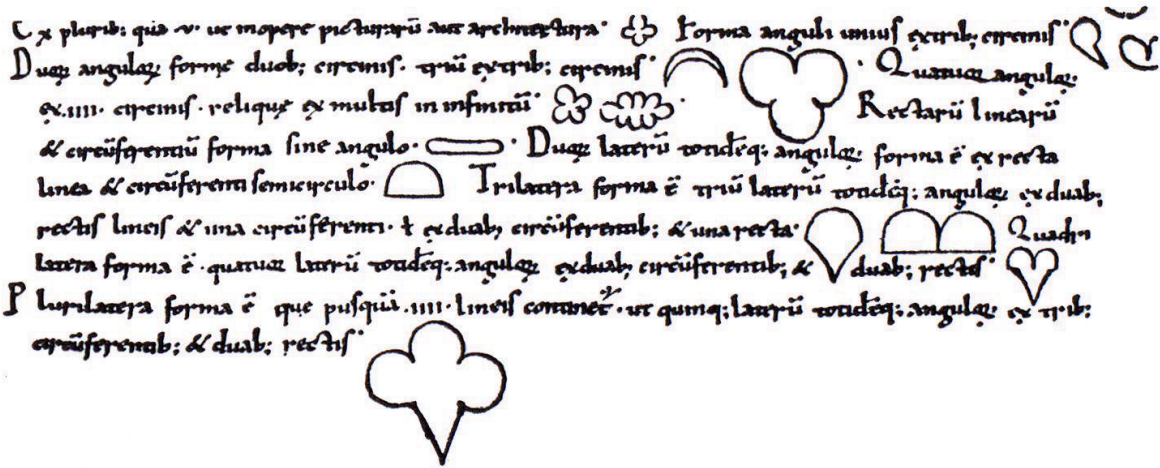 Ex plurib; quā .v. ut inopere picturarū aut architectura· Forma anguli unius extrib; circinis·
Duorꝝ angulorꝝ formę duob; circinis· triū extrib; circinis· Quatuor angulorꝝ·
ex .iiii. circinis· reliquę ex multis in infinitū· Rectarū linearū
& circūferentiū forma sine angulo· Duorꝝ laterū totidēq; angulorꝝ forma ē ex recta
linea & circūferenti semicirculo· Trilatera forma ē triū laterū totidēq; angulorꝝ exduab;
rectis lineis & una circūferenti· ł exduab; circūferentib; & una recta· Quadri
latera forma ē· quatuor laterū totidēq; angulorꝝ exduab; circūferentib; & duab; rectis·
Plurilatera forma ē que pusquā .iiii. lineis continet᷑· ut quinq; laterū totidēq; angulorꝝ ex trib;
circūferentib; & duab; rectis·